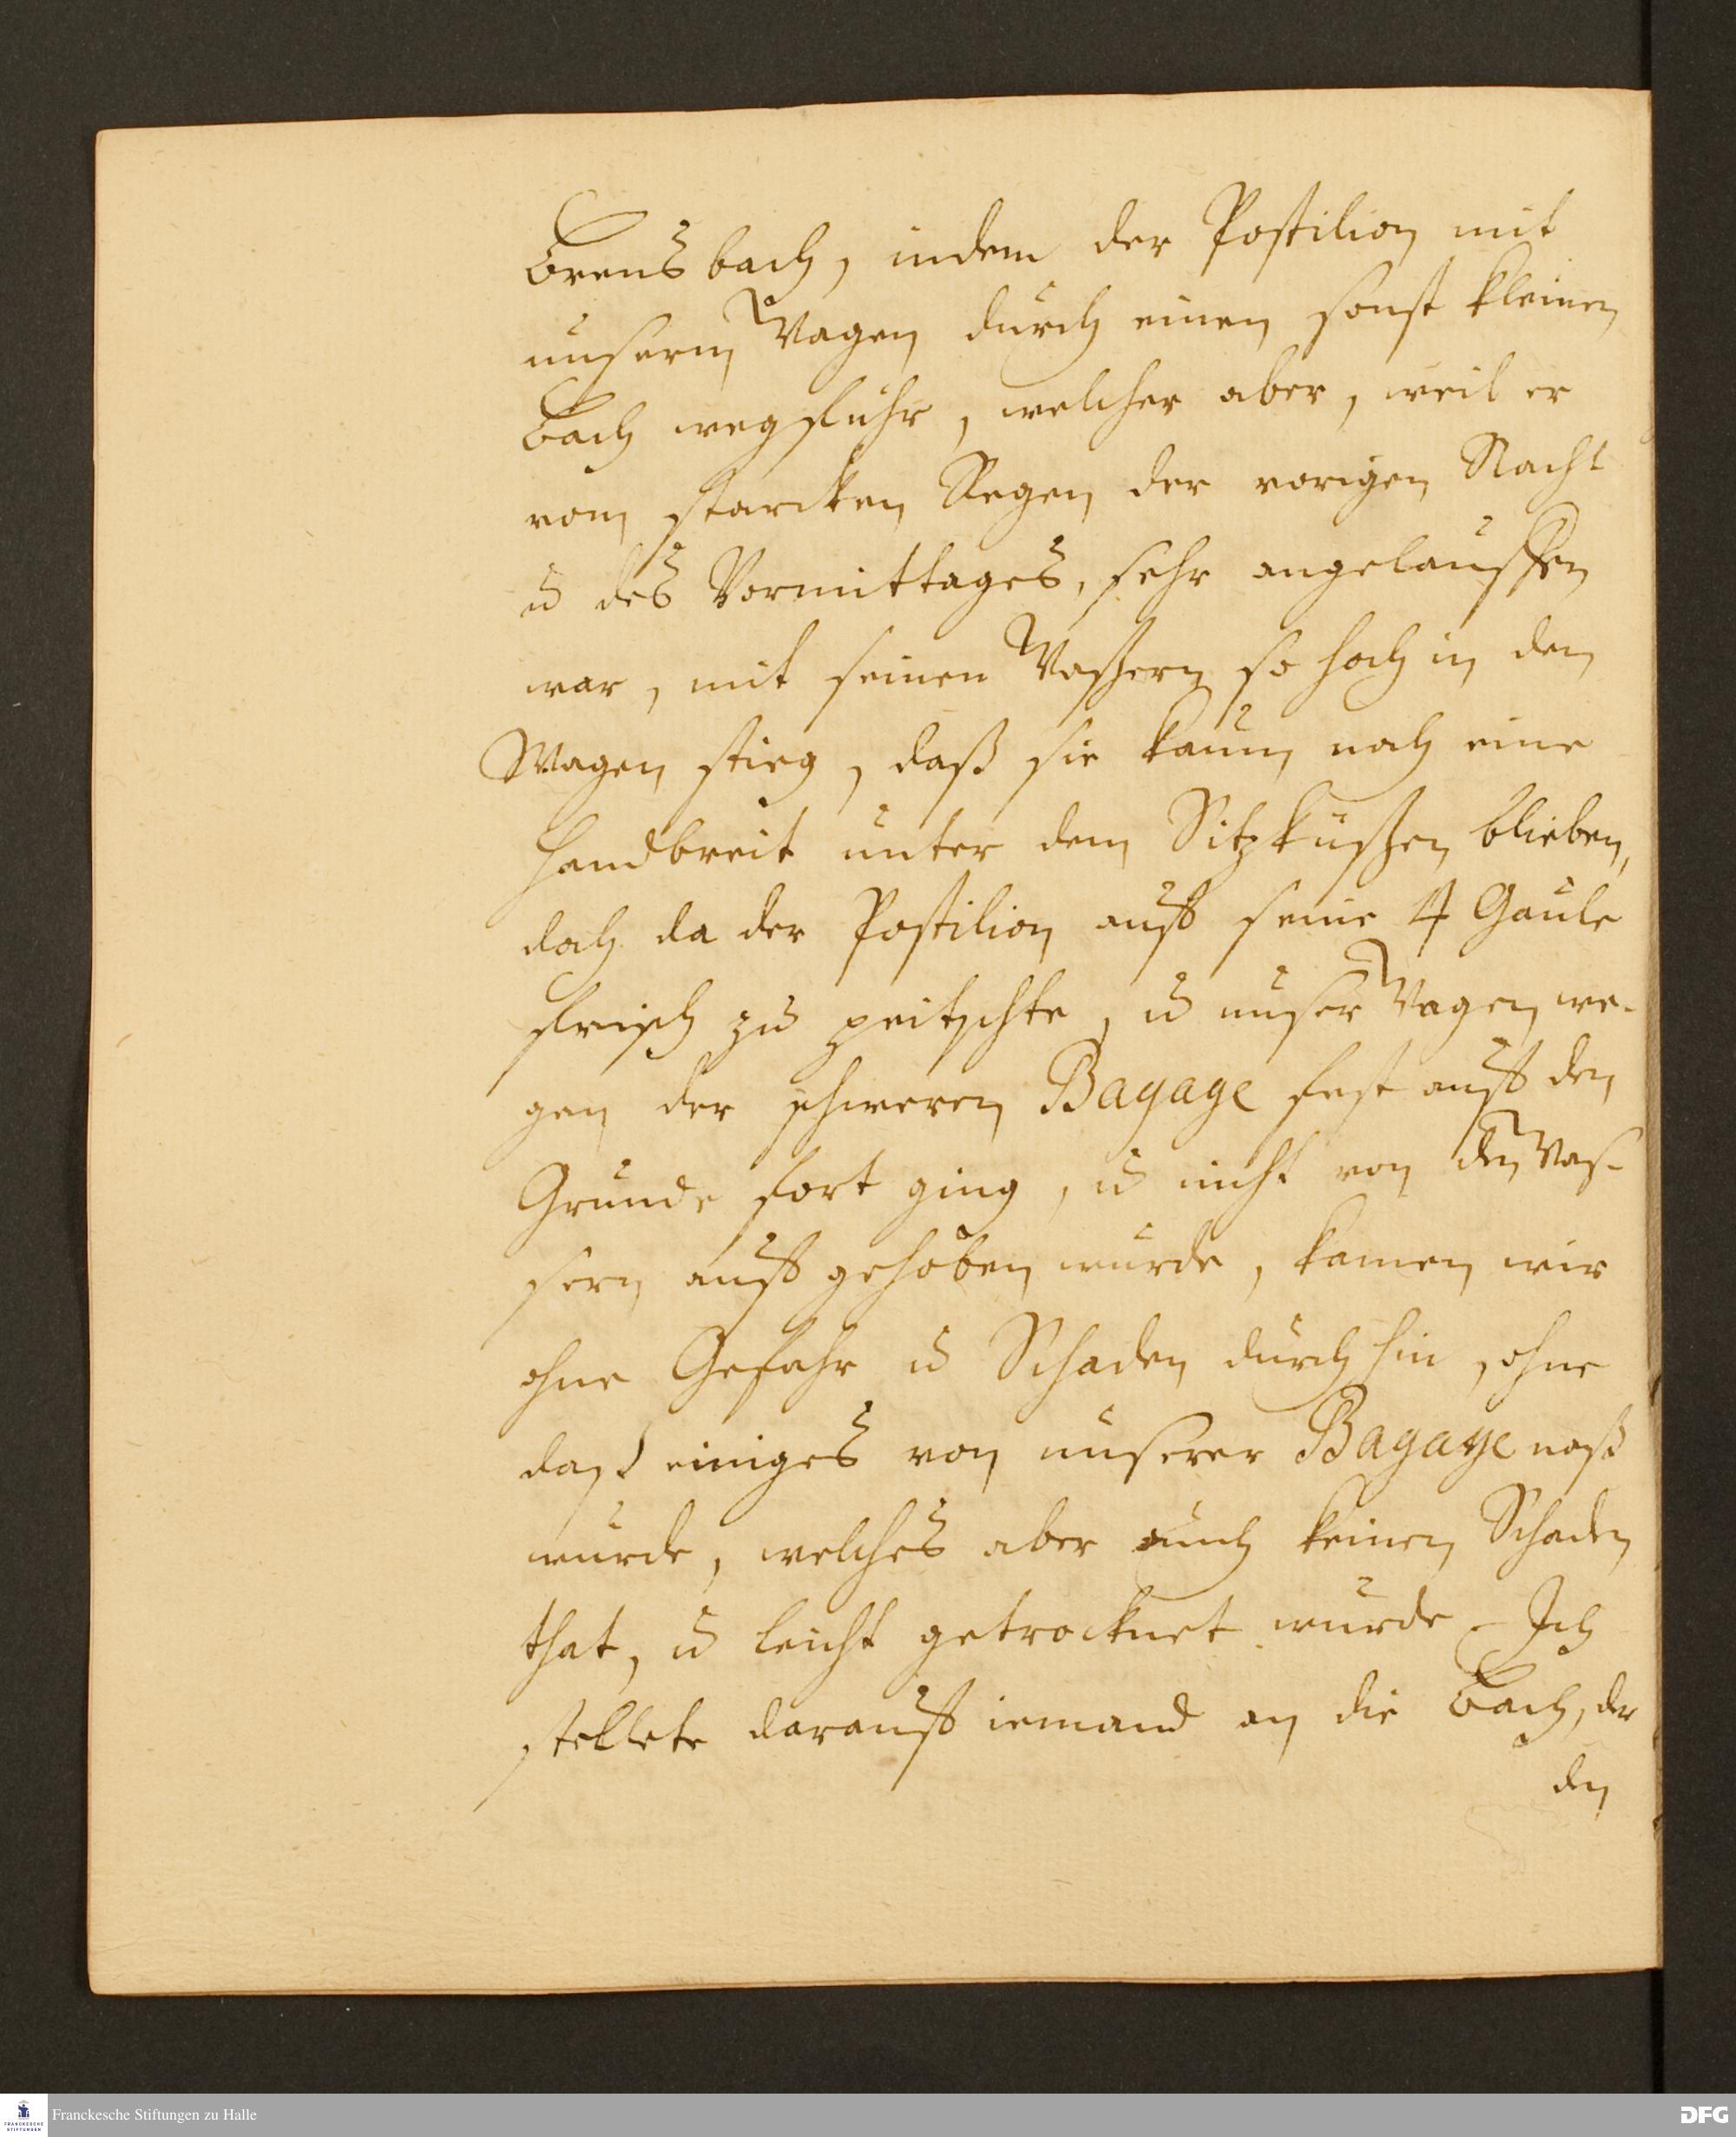 Brensbach, indem der Postilion mit
unserm Wagen durch einen sonst kleinen
Bach wegfuhr, welcher aber, weil er
vom starcken Regen der vorigen Nacht
u des Vormittages, sehr angelauffen
war, mit seinen Waßern so hoch in den
Wagen stieg, daß sie kaum noch eine
Handbreit unter dem Sitzküßen blieben,
doch da der Postilion auff seine 4 Gaule
frisch zu peitschte, u unser Wagen we-
gen der schweren Bagage fest auff den
Grunde fort ging, u nicht von den Waß-
sern auffgehoben wurde, kamen wir
ohne Gefahr u Schaden durchhin, ohne
daß einiges von unserer Bagage naß
wurde, welches aber auch keinen Schaden
that, u leicht getrocknet wurde. Ich
stellete darauff iemand an die Bach, der
den
Franckesche Stiftungen zu Halle
FRANCKESCHE STIFTUNGEN
DFG